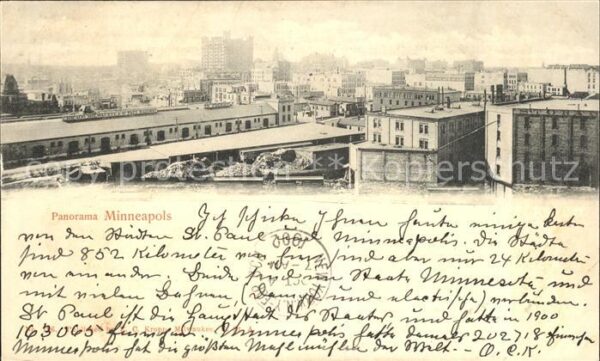 Panorama Minneapols
Ich schicke Ihnen heute einige Karten
von den Städten St. Paul und Minneapolis. die Städte
sind 852 Kilometer von sind aber nur 24 Kilometer
von einander. Beide sind im Staate Minnesota und
mit vielen Bahnen (Dampf und electrische) verbunden.
St. Paul ist die Hauptstadt des Staates und hatte in 1900
163063 Minneapolis hatte damals 202718 Einwohner
Minneapolis hat die größten Mehlmühlen der Welt. — O.C.K.